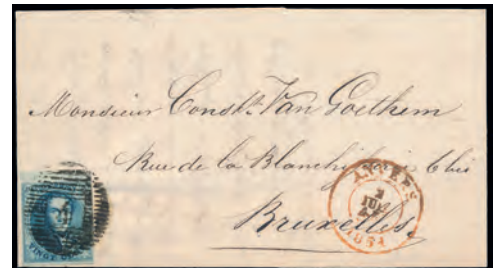 Monsieur Const. Van Goethem
Rue de la Blanchisserie 6 bis
Bruxelles
VINGT
ANVERS
2
1851